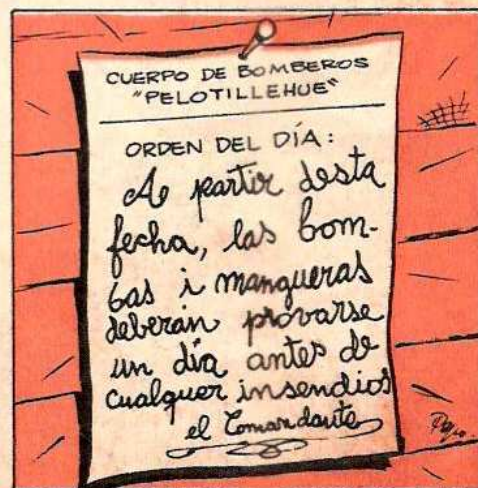 CUERPO DE BOMBEROS
"PELOTILLEHUE"
ORDEN DEL DÍA:
A partir desta
fecha, las bom-
bas i mangueras
deberán provarse
un día antes de
cualquer insendios
el Comandante
Pepo.